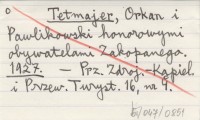 Tetmajer, Orkan i
Pawlikowski honorowymi
obywatelami Zakopanego.
1927. — Prz. Zdroj.-Kąpiel.
i Przew. Turyst. 16, na 9.